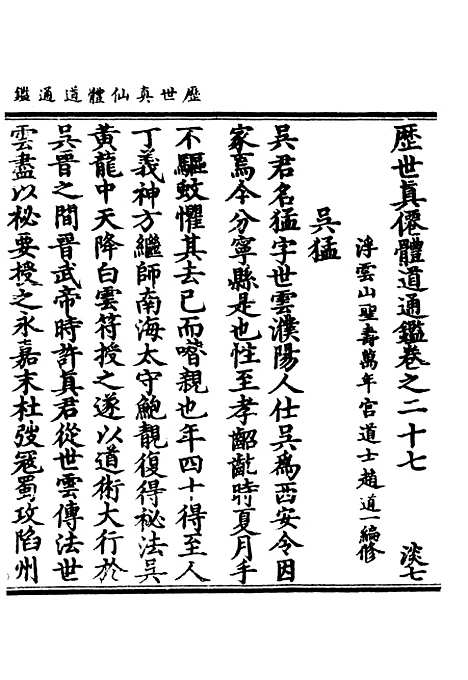 歷世真仙體道通鑑
歷世真僊體道通鑑卷之二十七 淡七
浮雲山聖壽萬年宮道士趙道一編修
吳猛
吳君名猛字世雲濮陽人仕吳為西安令因
家焉今分寧縣是也性至孝齠齔時夏月手
不驅蚊懼其去己而噆親也年四十得至人
丁義神方繼師南海太守鮑靚復得祕法吳
黃龍中天降白雲符授之遂以道術大行於
吳晉之間晉武帝時許真君從世雲傳法世
雲盡以秘要授之永嘉末杜弢寇蜀攻陷州